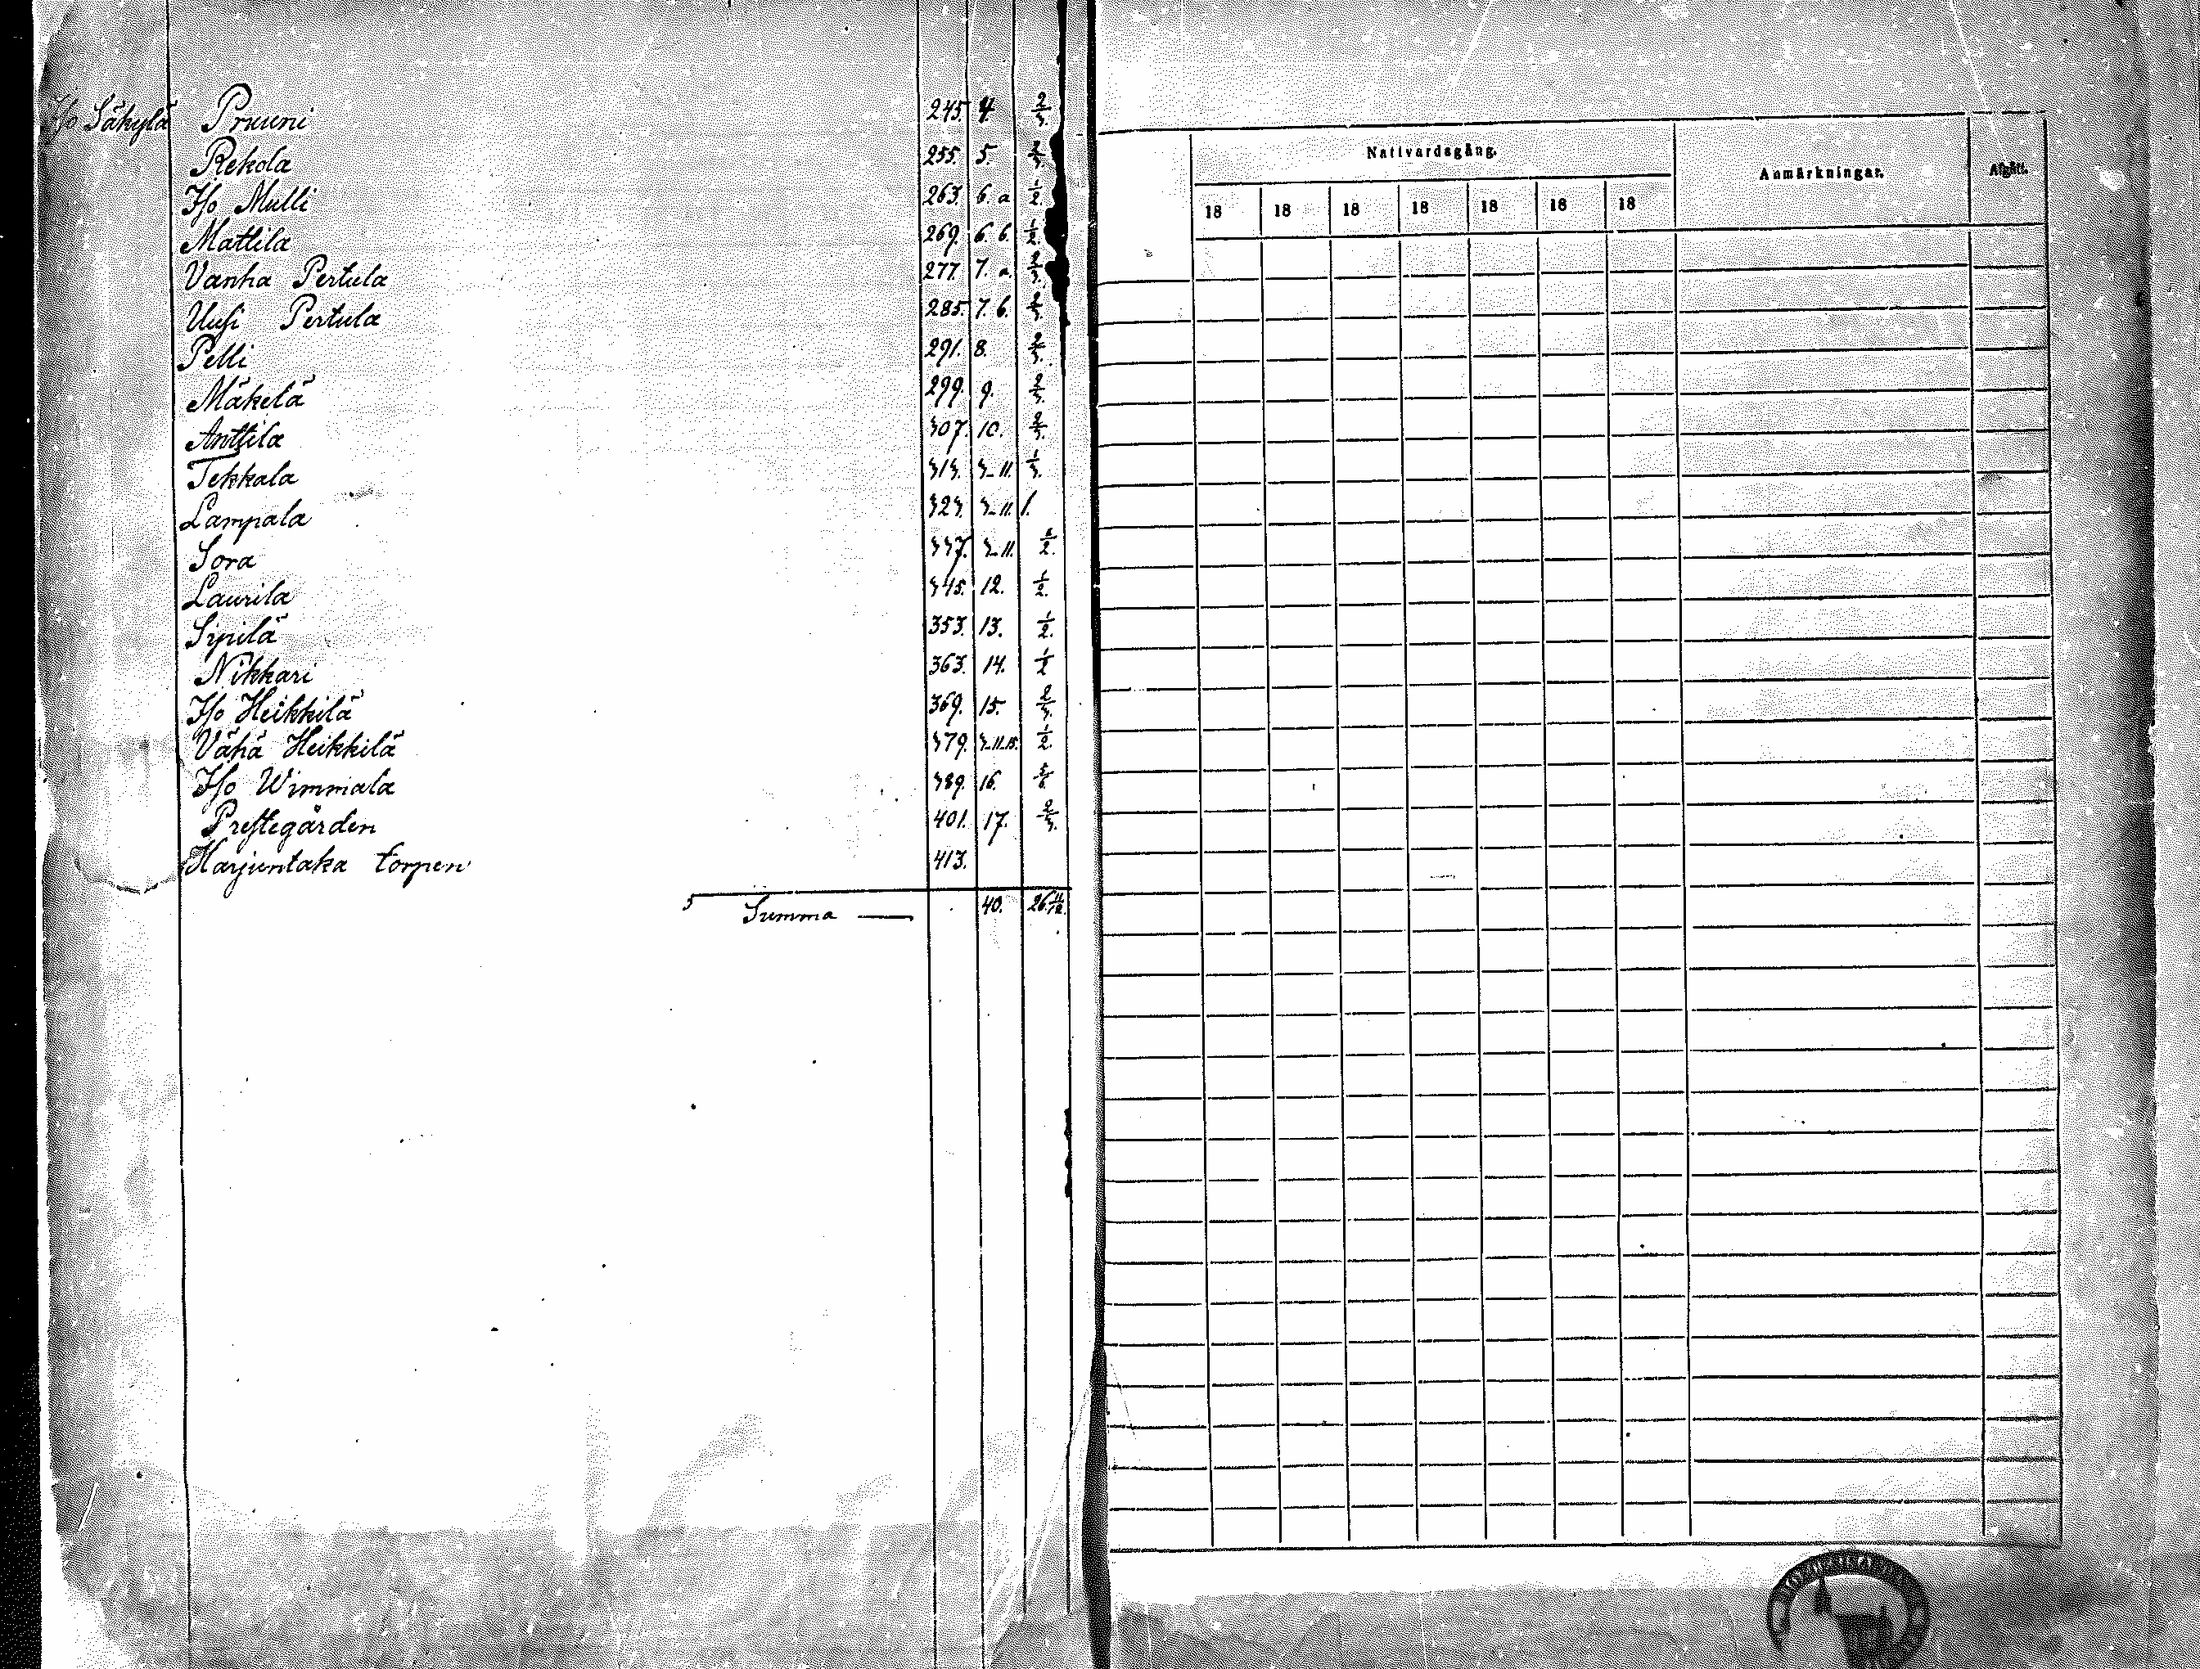 Iso Säkylä Pruuni 245. 4. 2/3.
Rekola 255. 5. 2/3.
Iso Mulli 263. 6. a 1/2.
Mattila 269. 6. b. 1/2.
Vanha Pertula 277. 7. a. 2/3.
Uusi Pertula 285. 7. b. 2/3.
Pelli 291. 8. 2/3.
Mäkelä 299. 9. 2/3.
Anttila 307. 10. 2/3.
Tekkala 313. 3-11. 1/3.
Lampala 323. 3-11. 1.
Sora 337. 3-11. 1/2.
Laurila 345. 12. 1/2.
Sipilä 353. 13. 1/2.
Nikkari 363. 14. 1/2
Iso Heikkilä 369. 15. 2/3.
Vähä Heikkilä 379. 3-11.15. 1/2.
Iso Wimmala 389. 16. 5/6.
Prestegården 401. 17. 2/3.
Harjuntaka torpen 413.
Summa — 40. 26 11/12.
Nattvardsgång.
Anmärkningar.
Afgått.
18 18 18 18 18 18 18